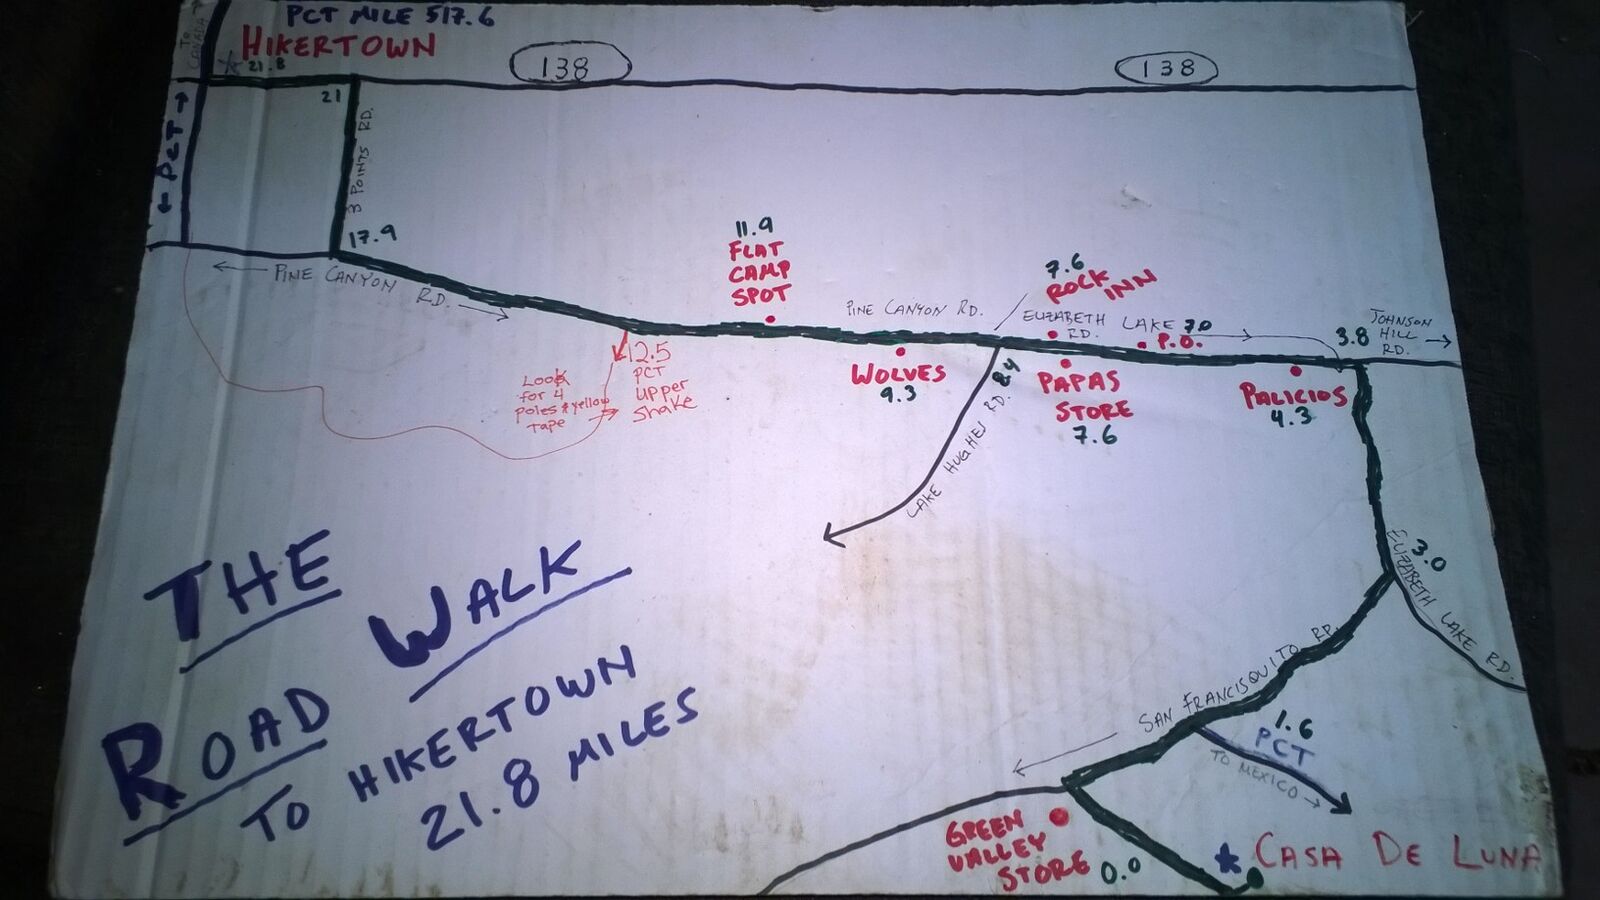 PCT MILE 517.6
HIKERTOWN
TO CANADA
21.8
138
138
21
← PCT →
3 POINTS RD.
17.9
← PINE CANYON RD. →
11.9
FLAT
CAMP
SPOT
PINE CANYON RD.
7.6
ROCK INN
ELIZABETH LAKE
RD.
7.0
P.O.
3.8
JOHNSON
HILL
RD. →
12.5
PCT
UPPER
Shake
Look
for 4
poles & yellow
tape
WOLVES
9.3
8.4
LAKE HUGHES RD.
PAPAS
STORE
7.6
PALICIOS
4.3
3.0
ELIZABETH LAKE RD.
SAN FRANCISQUITO RD.
1.6
PCT
TO MEXICO →
GREEN
VALLEY
STORE
0.0
CASA DE LUNA
THE
ROAD WALK
TO HIKERTOWN
21.8 MILES